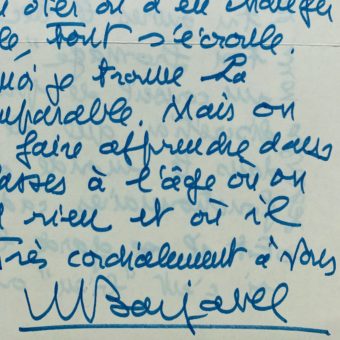 ôter ou d'en changer
lé, tout s'écroule.
moi je trouve La
mparable. Mais on
faire apprendre dans
asses à l'âge où on
rien et où il
Très cordialement à vous
Barjavel